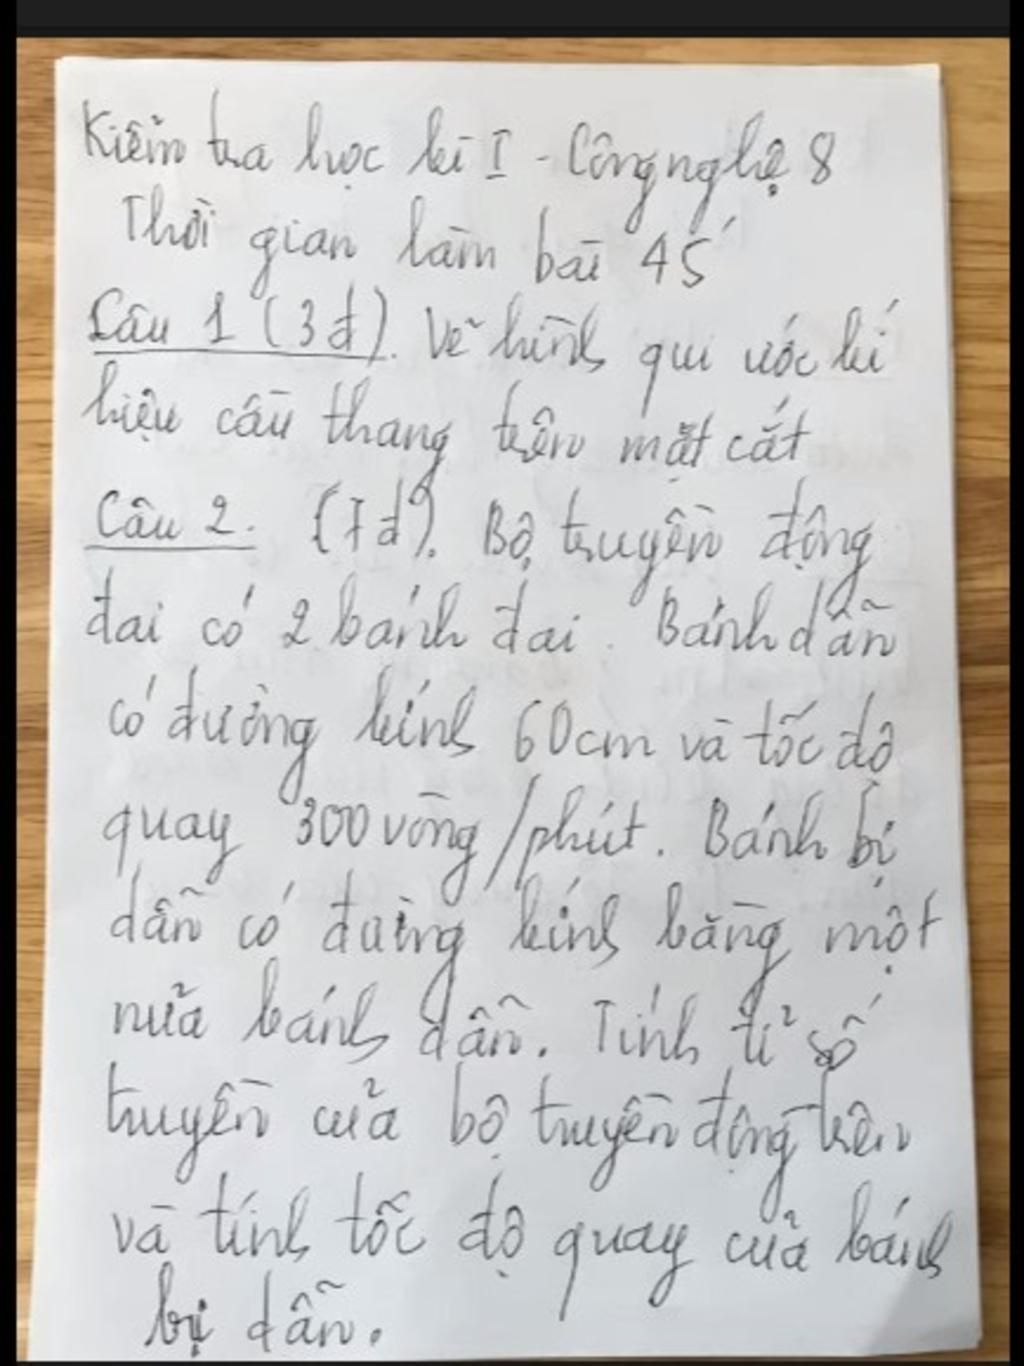 Kiểm tra học kì I - Công nghệ 8
Thời gian làm bài 45'
Câu 1 (3đ). Vẽ hình qui ước kí
hiệu cầu thang trên mặt cắt
Câu 2. (7đ). Bộ truyền động
đai có 2 bánh đai. Bánh dẫn
có đường kính 60cm và tốc độ
quay 300 vòng/phút. Bánh bị
dẫn có đường kính bằng một
nửa bánh dẫn. Tính tỉ số
truyền của bộ truyền động trên
và tính tốc độ quay của bánh
bị dẫn.